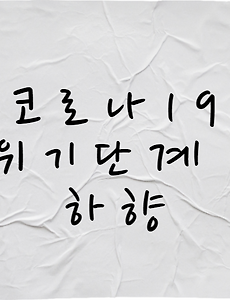 코로나19
위기단계
하향